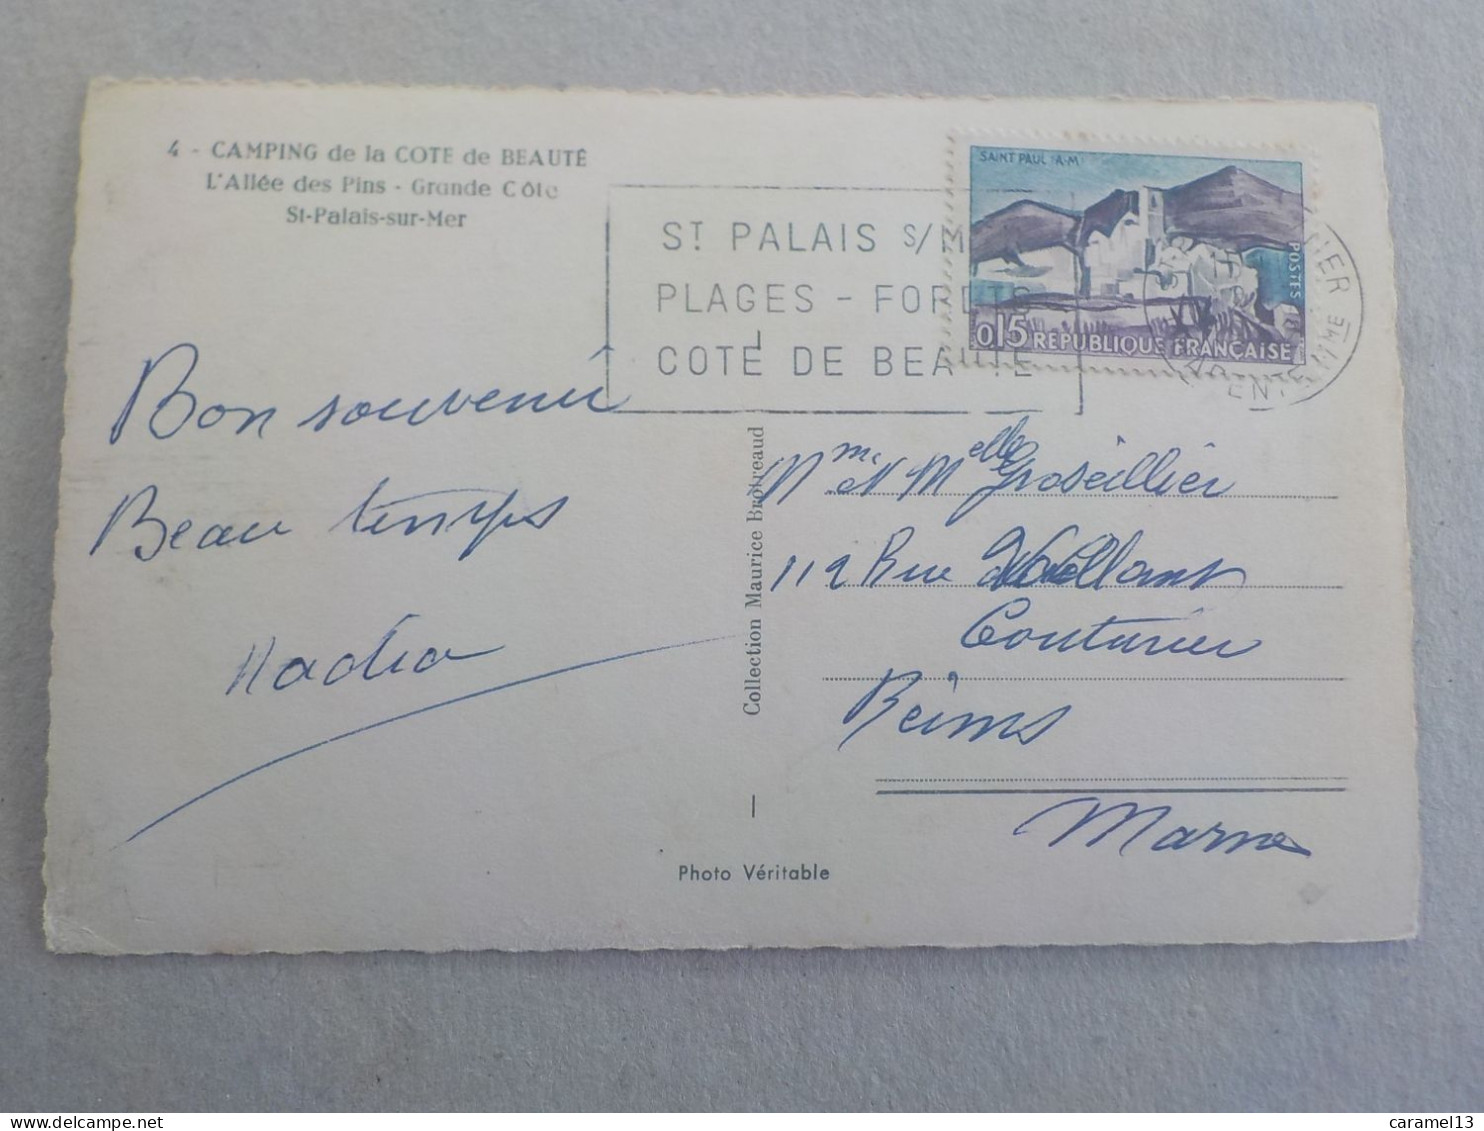 4 - CAMPING de la COTE de BEAUTÉ
L'Allée des Pins - Grande Côte
St-Palais-sur-Mer
ST PALAIS S/M
PLAGES - FORETS
COTE DE BEAUTE
SAINT PAUL A-M
POSTES
0,15 RÉPUBLIQUE FRANÇAISE
Bon souvenir
Beau temps
Nadia
Collection Maurice Brotreaud
Photo Véritable
Mme et Melle Groseillier
112 Rue Vaillant
Couturier
Reims
Marne
caramel13